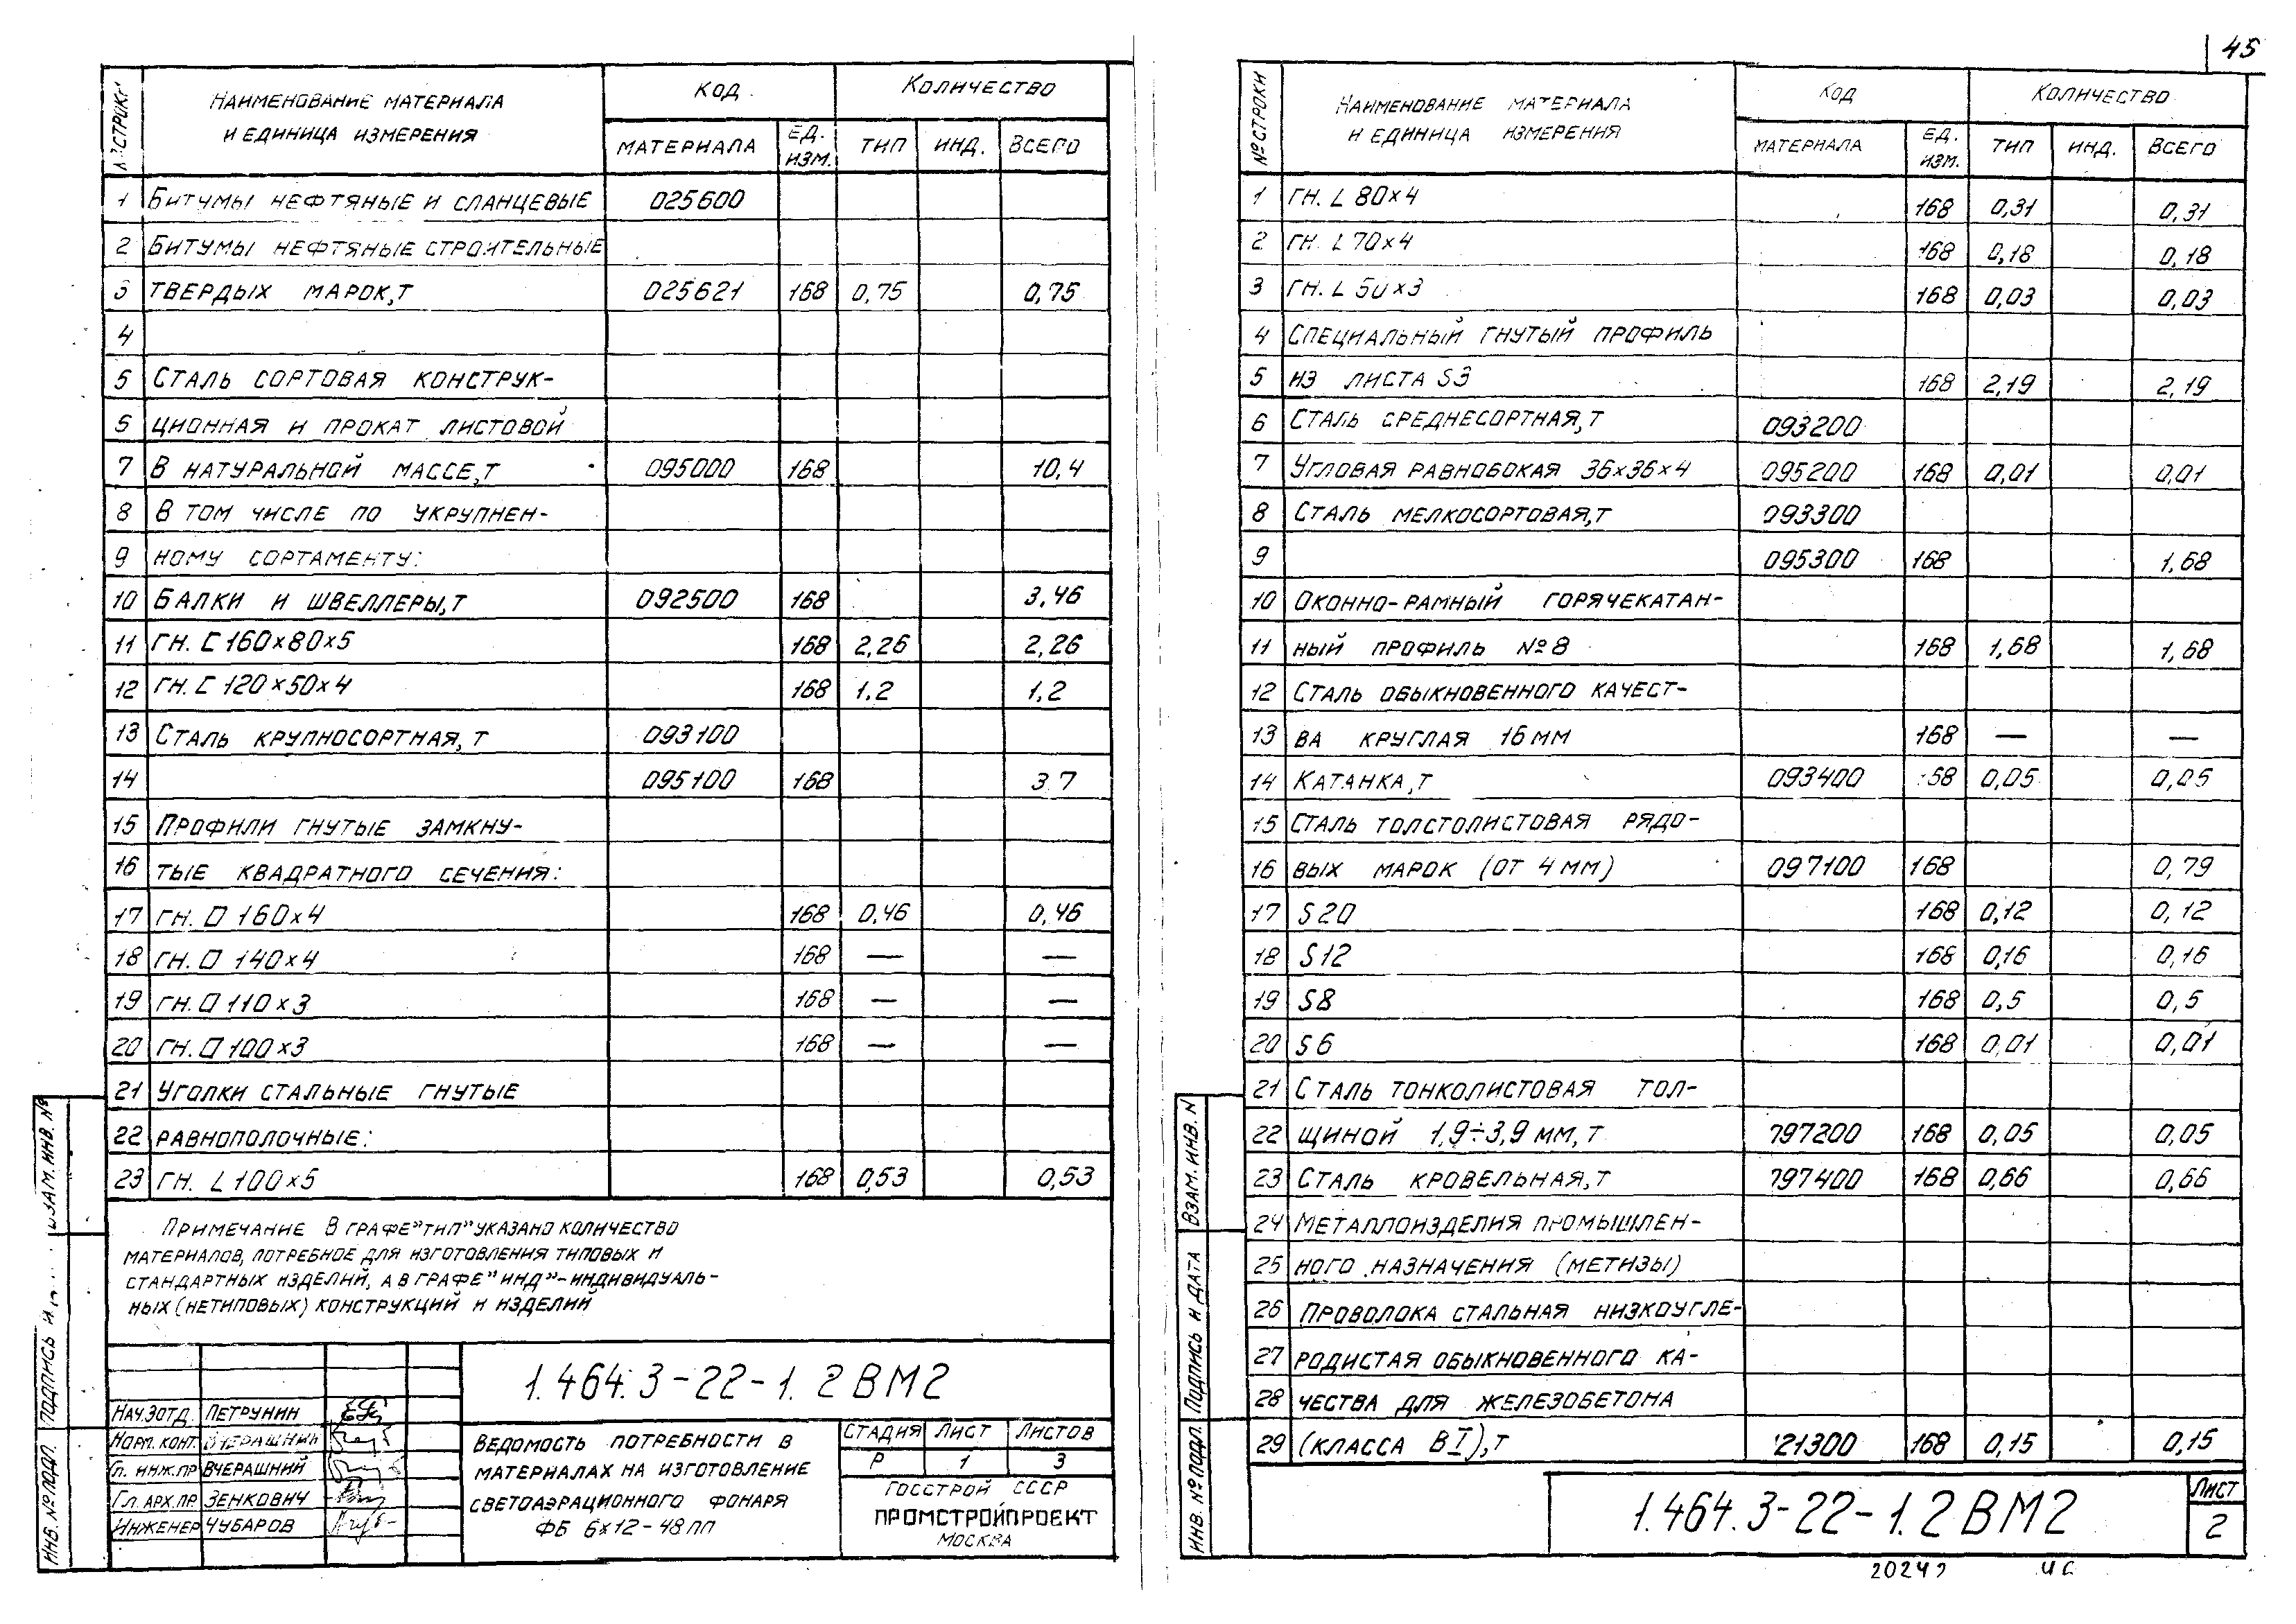 45
№ строки | Наименование материала и единица измерения | Код | Количество
материала | ед. изм. | тип | инд. | всего
1 Битумы нефтяные и сланцевые 025600
2 Битумы нефтяные строительные
3 твердых марок,т 025621 168 0,75 0,75
4
5 Сталь сортовая конструк-
6 ционная и прокат листовой
7 в натуральной массе,т 095000 168 10,4
8 В том числе по укрупнен-
9 ному сортаменту:
10 Балки и швеллеры,т 092500 168 3,46
11 гн. [ 160×80×5 168 2,26 2,26
12 гн. [ 120×50×4 168 1,2 1,2
13 Сталь крупносортная, т 093100
14 095100 168 3 7
15 Профили гнутые замкну-
16 тые квадратного сечения:
17 гн. □ 160×4 168 0,46 0,46
18 гн. □ 140×4 168 — —
19 гн. □ 110×3 168 — —
20 гн. □ 100×3 168 — —
21 Уголки стальные гнутые
22 равнополочные:
23 гн. L 100×5 168 0,53 0,53
Примечание В графе "тип" указано количество
материалов, потребное для изготовления типовых и
стандартных изделий, а в графе "инд" - индивидуаль-
ных (нетиповых) конструкций и изделий
1.464.3-22-1.2 ВМ2
Нач.Зотд. Петрунин
Норм. конт. Вчерашний
Гл. инж.пр Вчерашний
Гл. арх.пр. Зенкович
Инженер Чубаров
Ведомость потребности в
материалах на изготовление
светоаэрационного фонаря
ФБ 6×12-48пп
Стадия Лист Листов
Р 1 3
Госстрой СССР
ПРОМСТРОЙПРОЕКТ
Москва
Взам. инв. №
Подпись и
Инв. № подл.
№ строки | Наименование материала и единица измерения | Код | Количество
материала | ед. изм. | тип | инд. | всего
1 гн. L 80×4 168 0,31 0,31
2 гн. L 70×4 168 0,18 0,18
3 гн. L 50×3 168 0,03 0,03
4 Специальный гнутый профиль
5 из листа S3 168 2,19 2,19
6 Сталь среднесортная,т 093200
7 Угловая равнобокая 36×36×4 095200 168 0,01 0,01
8 Сталь мелкосортовая,т 093300
9 095300 168 1,68
10 Оконно-рамный горячекатан-
11 ный профиль №8 168 1,68 1,68
12 Сталь обыкновенного качест-
13 ва круглая 16мм 168 — —
14 Катанка,т 093400 168 0,05 0,05
15 Сталь толстолистовая рядо-
16 вых марок (от 4 мм) 097100 168 0,79
17 S20 168 0,12 0,12
18 S12 168 0,16 0,16
19 S8 168 0,5 0,5
20 S6 168 0,01 0,01
21 Сталь тонколистовая тол-
22 щиной 1,9÷3,9 мм, т 097200 168 0,05 0,05
23 Сталь кровельная,т 097400 168 0,66 0,66
24 Металлоизделия промышлен-
25 ного назначения (метизы)
26 Проволока стальная низкоугле-
27 родистая обыкновенного ка-
28 чества для железобетона
29 (класса ВI),т 121300 168 0,15 0,15
Взам. инв. №
Подпись и дата
Инв. № подл.
1.464.3-22-1.2 ВМ2
Лист
2